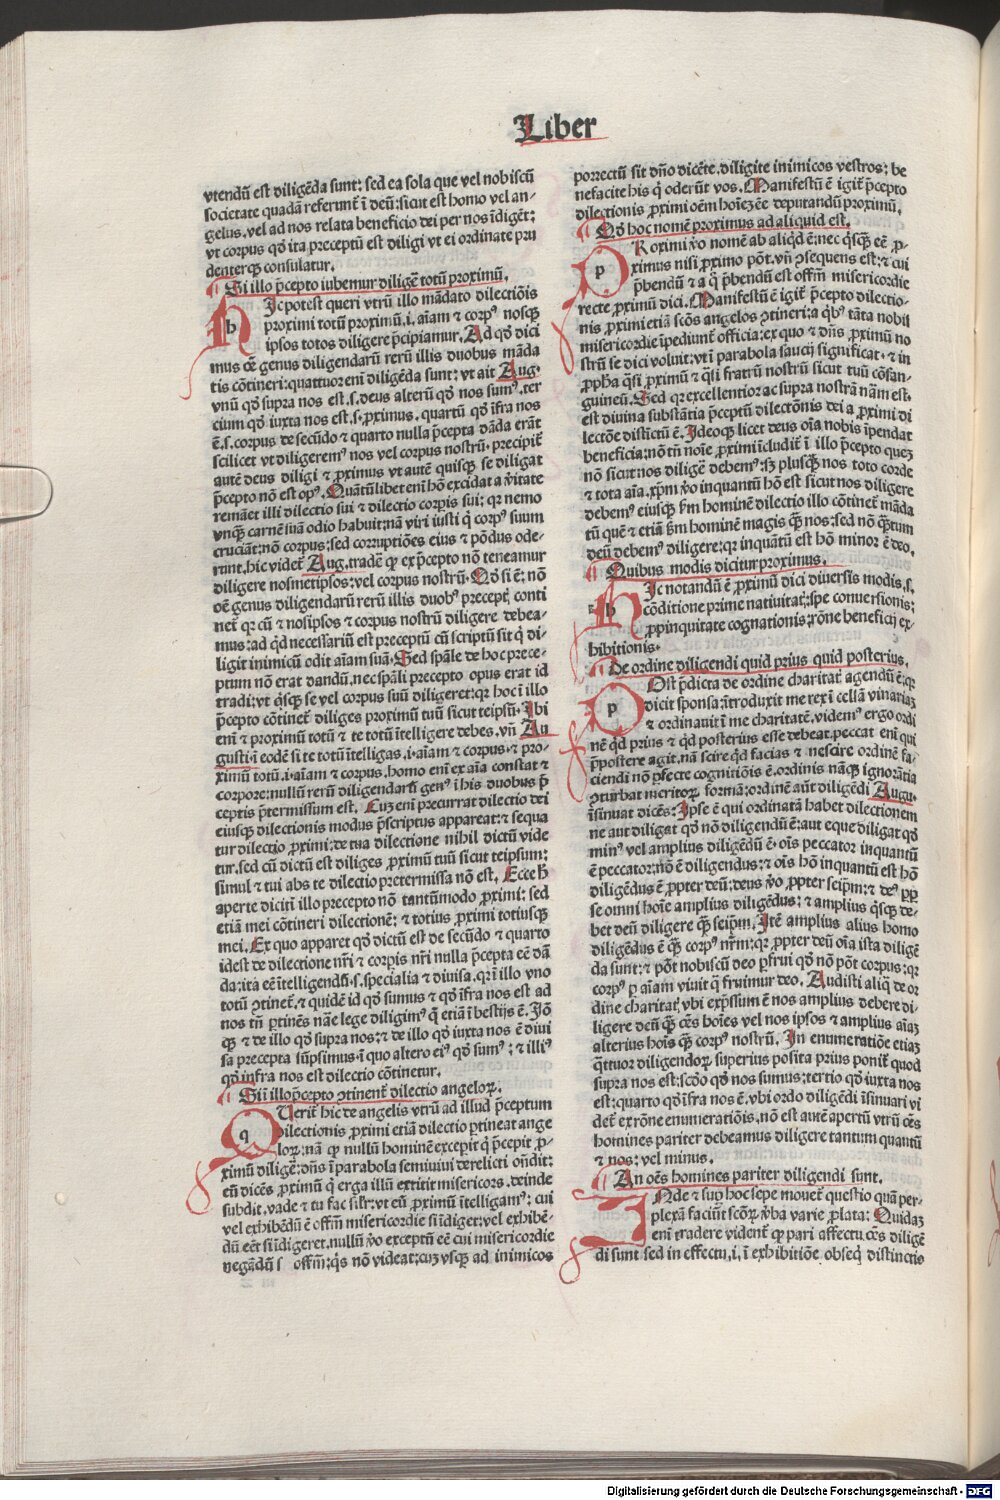 Liber
vtendū est diligēda sunt: sed ea sola que vel nobiscū
societate quadā referunt̄ ī deū: sicut est homo vel an-
gelus, vel ad nos relata beneficio dei per nos īdigēt:
vt corpus qd̄ ita preceptū est diligi vt ei ordinate pru
denterqꝫ consulatur.
Si illo p̄cepto iubemur diligē totū proximū.
h
Ic potest queri vtrū illo mādato dilectiōis
proximi totū proximū .i. aīam ⁊ corpꝰ nosqꝫ
ipsos totos diligere p̄cipiamur. Ad qd̄ dici
mus oē genus diligendarū rerū illis duobus māda
tis cōtineri: quattuor enī diligēda sunt: vt ait Aug.
vnū qd̄ supra nos est .s. deus alterū qd̄ nos sumꝰ. ter
cium qd̄ iuxta nos est .s. proximus. quartū qd̄ īfra nos
ē .s. corpus de secūdo ⁊ quarto nulla p̄cepta dāda erāt
scilicet vt diligeremꝰ nos vel corpus nostrū. precipit̄
autē deus diligi ⁊ ꝓximus vt autē quisqꝫ se diligat
p̄cepto nō est opꝰ. Quātūlibet enī hō excidat a v̄itate
remāet illi dilectio sui ⁊ dilectio corꝑis sui: qꝛ nemo
vnqꝫ carnē suā odio habuit: nā viri iusti q̄ corpꝰ suum
cruciāt: nō corpus: sed corruptiōes eius ⁊ pōdus ode-
runt. hic videt̄ Aug. tradē ꝙ ex p̄cepto nō teneamur
diligere nosmetipsos: vel corpus nostrū. Qd̄ si ē: nō
oē genus diligendarū rerū illis duobꝰ precept̄ conti
net̄ qꝛ cū ⁊ nosipsos ⁊ corpus nostrū diligere debea-
mus: ad qd̄ necessariū est preceptū cū scriptū sit q̄ di-
ligit inimicū odit aīam suā. Sed sp̄ale de hoc prece-
ptum nō erat dandū, nec sp̄ali precepto opus erat id
tradi: vt q̄sqꝫ se vel corpus suū diligeret: qꝛ hoc ī illo
p̄cepto cōtinet̄ diliges proximū tuū sicut teipsū. Ibi
enī ⁊ proximū totū ⁊ te totū ītelligere debes. vn̄ Au
gusti. ī eodē si te totū ītelligas .i. aīam ⁊ corpus. ⁊ pro-
ximū totū .i. aīam ⁊ corpus. homo enī ex aīa constat ⁊
corpore: nullū rerū diligendarū genꝰ ī his duobus p̄
ceptis p̄termissum est. Cuꝫ enī precurrat dilectio dei
eiusqꝫ dilectionis modus p̄scriptus appareat: ⁊ sequa
tur dilectio ꝓximi: de tua dilectione nihil dictū vide
tur. sed cū dictū est diliges ꝓximū tuū sicut teipsum:
simul ⁊ tui abs te dilectio pretermissa nō est. Ecce h̄
aperte dicit̄ ī illo precepto nō tantūmodo ꝓximi: sed
etiā mei cōtineri dilectionē: ⁊ totius ꝓximi totiusqꝫ
mei. Ex quo apparet qd̄ dictū est de secūdo ⁊ quarto
idest de dilectione nr̄i ⁊ corꝑis nr̄i nulla p̄cepta eē dā
da: ita eē ītelligendū .s. specialia ⁊ diuisa. qꝛ ī illo vno
totū ꝯtinet̄. ⁊ quidē id qd̄ sumus ⁊ qd̄ īfra nos est ad
nos tn̄ ꝑtinēs nāe lege diligimꝰ q̄ etiā ī bestijs ē. Iō
qꝫ ⁊ de illo qd̄ supra nos: ⁊ de illo qd̄ iuxta nos ē diui
sa precepta sūpsimus. ī quo altero eiꝰ qd̄ sumꝰ: ⁊ illiꝰ
qd̄ infra nos est dilectio cōtinetur.
Si ī illo p̄cepto ꝯtinent̄ dilectio angeloꝝ.
q
Uerit̄ hic de angelis vtrū ad illud p̄ceptum
dilectionis ꝓximi etiā dilectio ꝑtineat ange
loꝝ: nā ꝙ nullū hominē excepit q̄ p̄cepit ꝓ-
ximū diligē: dn̄s ī parabola semiuiui derelicti on̄dit:
eū dicēs ꝓximū q̄ erga illū extitit misericors. deinde
subdit. vade ⁊ tu fac sil̄r: vt eū ꝓximū ītelligamꝰ: cui
vel exhibēdū ē offm̄ misericordie si īdiget: vel exhibē-
dū eēt si īdigeret. nullū v̄o exceptū eē cui misericordie
negādū s offm̄: q̄s nō videat: cuꝫ vsqꝫ ad inimicos
porrectū sit dn̄o dicēte. diligite inimicos vestros: be
nefacite his q̄ oderūt vos. Manifestū ē igit̄ p̄cepto
dilectionis ꝓximi oēm hoīeꝫ eē deputandū proximū.
Qd̄ hoc nomē proximus ad aliquid est.
p
Roximi v̄o nomē ab aliqd̄ ē: nec q̄sqꝫ eē ꝓ-
ximus nisi ꝓximo pōt. vn̄ ꝯsequens est: ⁊ cui
p̄bendū ⁊ a q̄ p̄bendū est offm̄ misericordie
recte ꝓximū dici. Manifestū ē igit̄ p̄cepto dilectio-
nis ꝓximi etiā scōs angelos ꝯtineri: a q̄bꝰ tāta nobis
misericordie īpediunt̄ officia: ex quo ⁊ dn̄s ꝓximū no
strū se dici voluit: vt ī parabola saucij significat. ⁊ in
ꝓpha q̄si ꝓximū ⁊ q̄si fratrū nostrū sicut tuū cōsan-
guineū. Sed qꝛ excellentior ac supra nostrā nām est.
est diuina substātia p̄ceptū dilectōnis dei a ꝓximi di
lectōe distictū ē. Ideoqꝫ licet deus oīa nobis īpendat
beneficia: nō tn̄ noīe ꝓximi īcludit̄ ī illo p̄cepto queꝫ
nō sicut nos diligē debemꝰ: sꝫ plusqꝫ nos toto corde
⁊ tota aīa. xp̄m v̄o inquantū hō est sicut nos diligere
debemꝰ eiusqꝫ ẜm hominē dilectio illo cōtinet̄ māda
tū quē ⁊ etiā ẜm hominē magis qꝫ nos: sed nō qꝫtum
deū debemꝰ diligere: qꝛ inquātū est hō minor ē deo.
Quibus modis dicitur proximus.
h
Ic notandū ē ꝓximū dici diuersis modis .s.
cōditione prime natiuitat̄: spe conuersionis:
ꝓpinquitate cognationis: rōne beneficij ex-
hibitionis.
De ordine diligendi quid prius quid posterius.
p
Ost p̄dicta de ordine charitat̄ agendū ē: qꝛ
dicit sponsa: ītroduxit me rex ī cellā vinariaꝫ
⁊ ordinauit ī me charitatē. videmꝰ ergo ordi
nē qd̄ prius ⁊ qd̄ posterius esse debeat. peccat enī qui
p̄postere agit. nā scire qd̄ facias ⁊ nescire ordinē fa-
ciendi nō ꝑfecte cognitiōis ē. ordinis nāqꝫ ignorātia
ꝯturbat meritoꝝ formā: ordinē aūt diligēdi Augu.
īsinuat dicēs: Ipse ē qui ordinatā habet dilectionem
ne aut diligat qd̄ nō diligendū ē: aut eque diligat qd̄
minꝰ vel amplius diligēdū ē. oīs peccator inquantū
ē peccator: nō ē diligendus: ⁊ oīs hō inquantū est hō
diligēdus ē ꝓpter deū: deus v̄o ꝓpter seip̄m: ⁊ deꝰ ꝓp
se omni hoīe amplius diligēdus: ⁊ amplius q̄sqꝫ de-
bet deū diligere qꝫ seip̄m. Itē amplius alius homo
diligēdus ē qꝫ corpꝰ nr̄m: qꝛ ꝓpter deū oīa ista diligē
da sunt: ⁊ pōt nobiscū deo ꝑfrui qd̄ nō pōt corpus: qꝛ
corpꝰ ꝑ aīam viuit q̄ fruimur deo. Audisti aliqd̄ de or
dine charitat̄ vbi exp̄ssum ē nos amplius debere di-
ligere deū qꝫ oēs hoīes vel nos ipsos ⁊ amplius aīaꝫ
alterius hoīs qꝫ corpꝰ nostrū. In enumeratiōe etiaꝫ
q̄ttuor diligendoꝝ superius posita prius ponit̄ quod
supra nos est: scd̄o qd̄ nos sumus: tertio qd̄ iuxta nos
est: quarto qd̄ īfra nos ē. vbi ordo diligēdi īsinuari vi
det̄ ex rōne enumeratiōis. nō est autē apertū vtrū oēs
homines pariter debeamus diligere tantum quantū
⁊ nos: vel minus.
An oēs homines pariter diligendi sunt.
Nde ⁊ suꝑ hoc sepe mouet̄ questio quā per-
plexā faciūt scōꝝ v̄ba varie ꝓlata: Quidaꝫ
enī tradere vident̄ ꝙ pari affectu oēs diligē
di sunt sed in effectu .i. ī exhibitiōe obseqꝫ distinctis
Digitalisierung gefördert durch die Deutsche Forschungsgemeinschaft - DFG